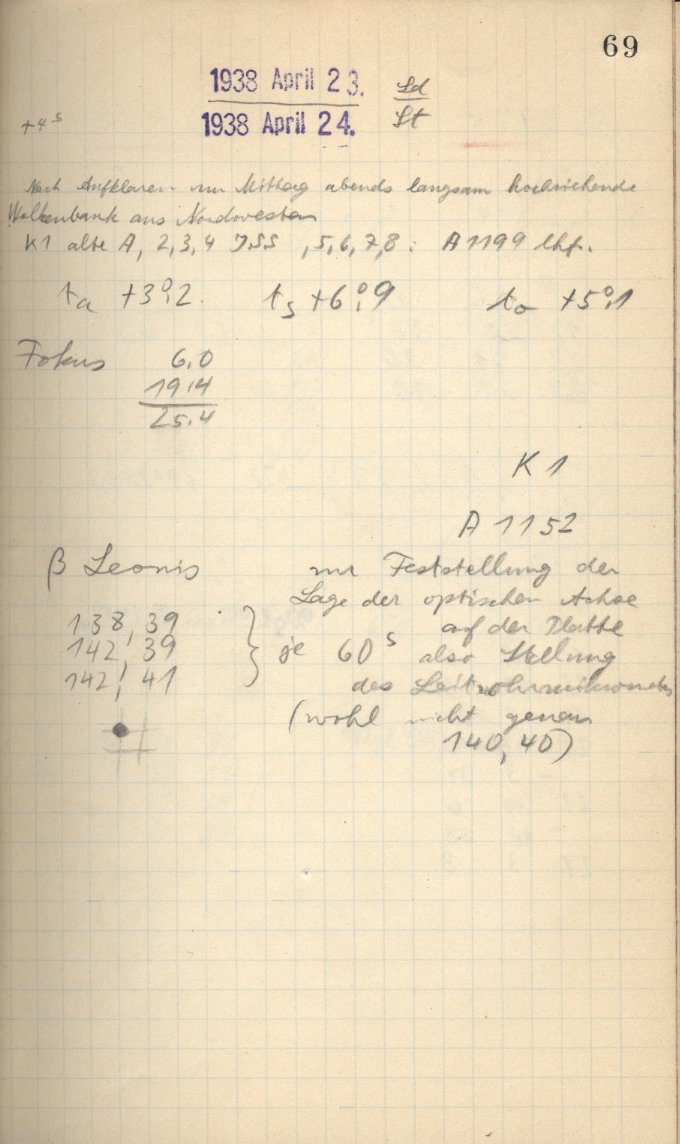 69
1938 April 23. Ld
1938 April 24. St
+4 s
Nach Aufklaren am Mittag abends langsam hochziehende
Wolkenbank aus Nordwesten
K1 alte A, 2, 3, 4 JSS , 5, 6, 7, 8 : A 1199 lhf.
ta +3°,2 ts +6°,9 to +5°,1
Fokus 6,0
19,4
25,4
K 1
A 1152
β Leonis zur Feststellung der
Lage der optischen Achse
138, 39 auf der Platte
142, 39 } je 60 s also Stellung
142, 41 des Leitrohrmikrometers
(wohl nicht genau
140, 40)